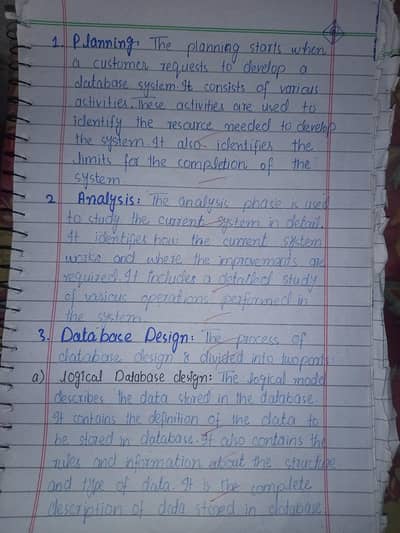 1. Planning: The planning starts when
a customer requests to develop a
database system. It consists of various
activities. These activities are used to
identify the resource needed to develop
the system. It also identifies the
limits for the completion of the
system
2. Analysis: The analysis phase is used
to study the current system in detail.
It identifies how the current system
works and where the improvements are
required. It includes a detailed study
of various operations performed in
the system.
3. Database Design: The process of
database design is divided into two parts
a) logical Database design: The logical model
describes the data stored in the database.
It contains the definition of the data to
be stored in database. It also contains the
rules and information about the structure
and type of data. It is the complete
description of data stored in database.